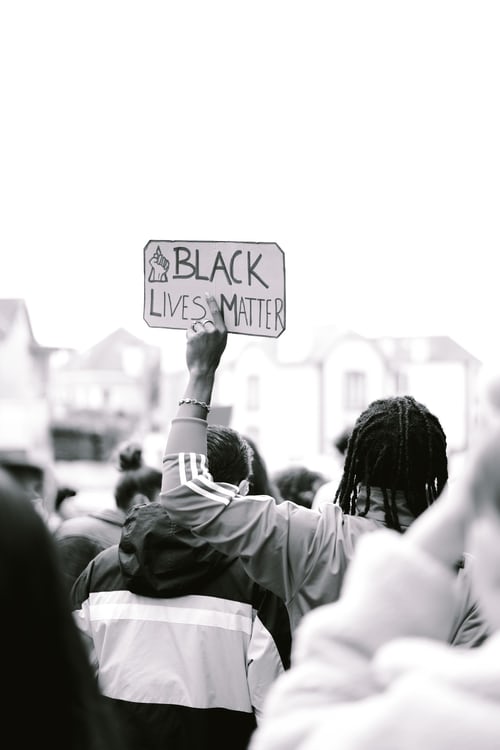 BLACK
LIVES MATTER